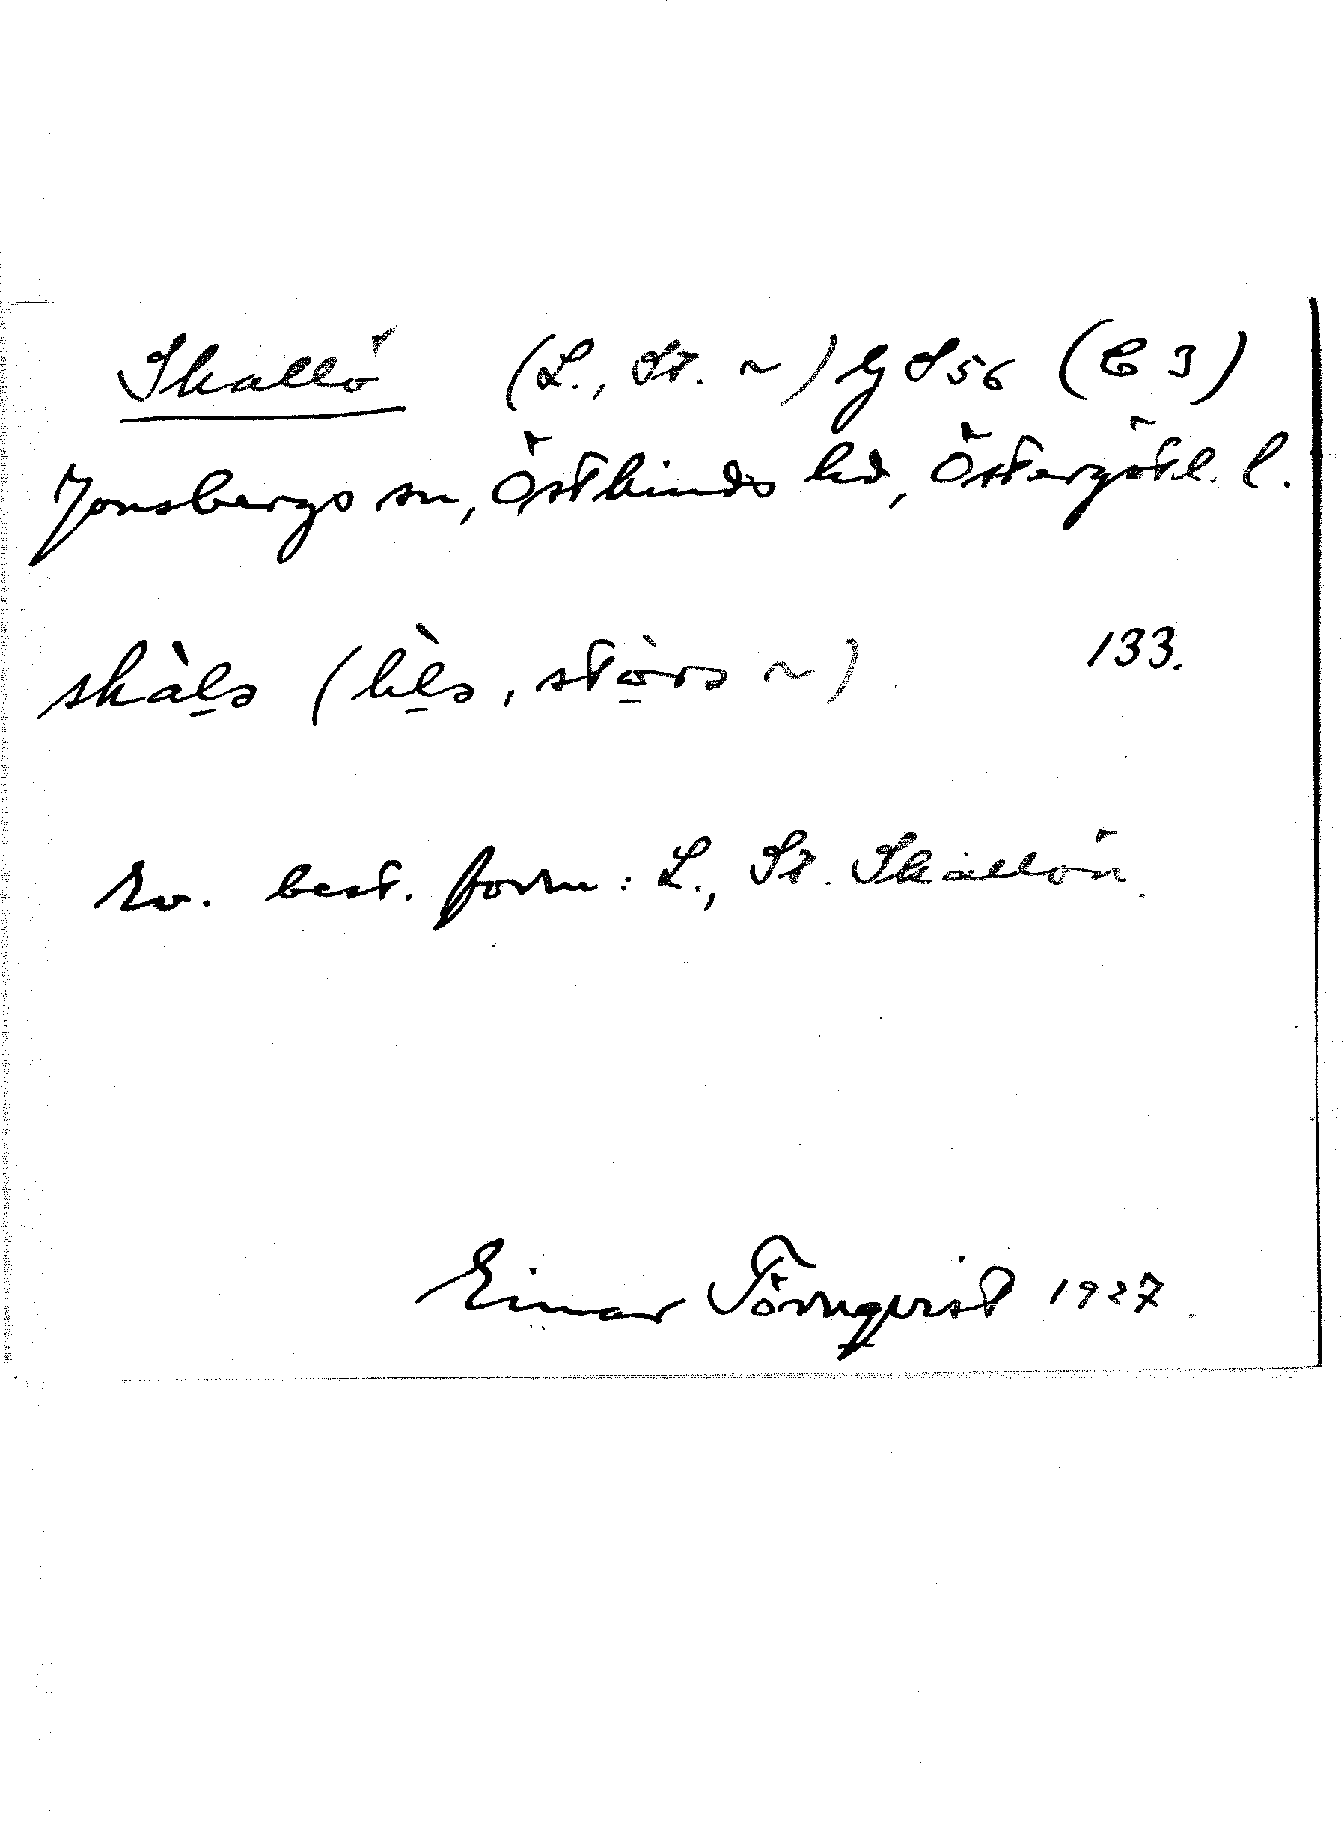 Skallö (L., St. ~) G S 56 (C 3)
Jonsbergs sn, Östkinds hd, Östergötl. l.
133.
Ev. best. form: L., St. Skallön.
Einar Törnqvist 1927